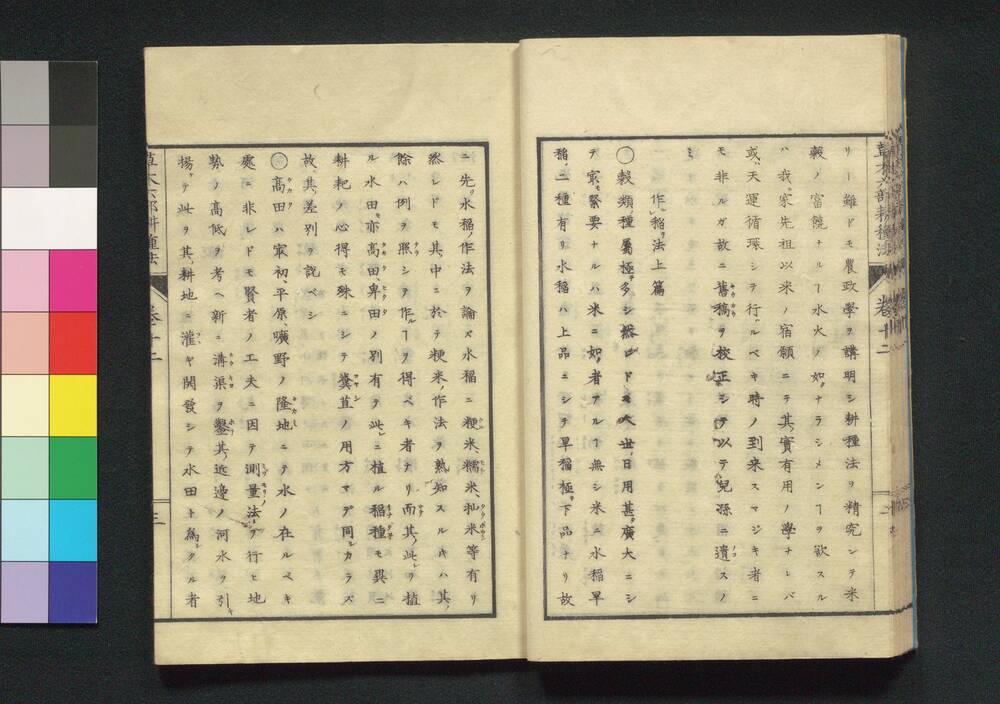 リト雖ドモ農政學ヲ講明シ耕種法ヲ精究シテ米
穀ノ富饒ナルヿ水火ノ如クナラシメンヿヲ欲スル
ハ我家先祖以来ノ宿願ニテ其實有用ノ學ナレバ
或天運循環シテ行ルベキ時ノ到来スマジキ者ニ
モ非ルガ故ニ舊稿ヲ校正シテ以テ兒孫ニ遺スノ
ミ
作稲法上篇
〇穀類種屬極多シ然レドモ人世日用甚廣大ニシ
テ冣緊要ナルハ米ニ如者アルヿ無シ米ニ水稲旱
稲ノ二種有リ水稲ハ上品ニシテ旱稲極下品ナリ故
草木六部耕種法 卷十二
ニ先水稲ノ作法ヲ論ズ水稲ニ粳米、糯米、籼米等有リ
然レドモ其中ニ於テ粳米ノ作法ヲ熟知スル片ハ其
餘ハ例ヲ照シテ作ルヿヲ得ベキ者ナリ而其此ヲ植
ル水田モ亦高田、卑田ノ別有テ此ニ植ル稲種モ異ニ
耕耙ノ心得モ殊ニシテ糞苴ノ用方マデ同シカラズ
故其差別ヲ說ベシ
〇高田ハ冣初平原、曠野ノ隆地ニテ水ノ在ルベキ
處ニ非レドモ賢者ノ工夫ニ因テ測量法ヲ行ヒ地
勢ノ高低ヲ考ヘ新ニ溝渠ヲ鑿其近邊ノ河水ヲ引
揚テ此ヲ其耕地ニ灌ギ開發シテ水田ト為タル者
草木六部耕種法 卷十二 三